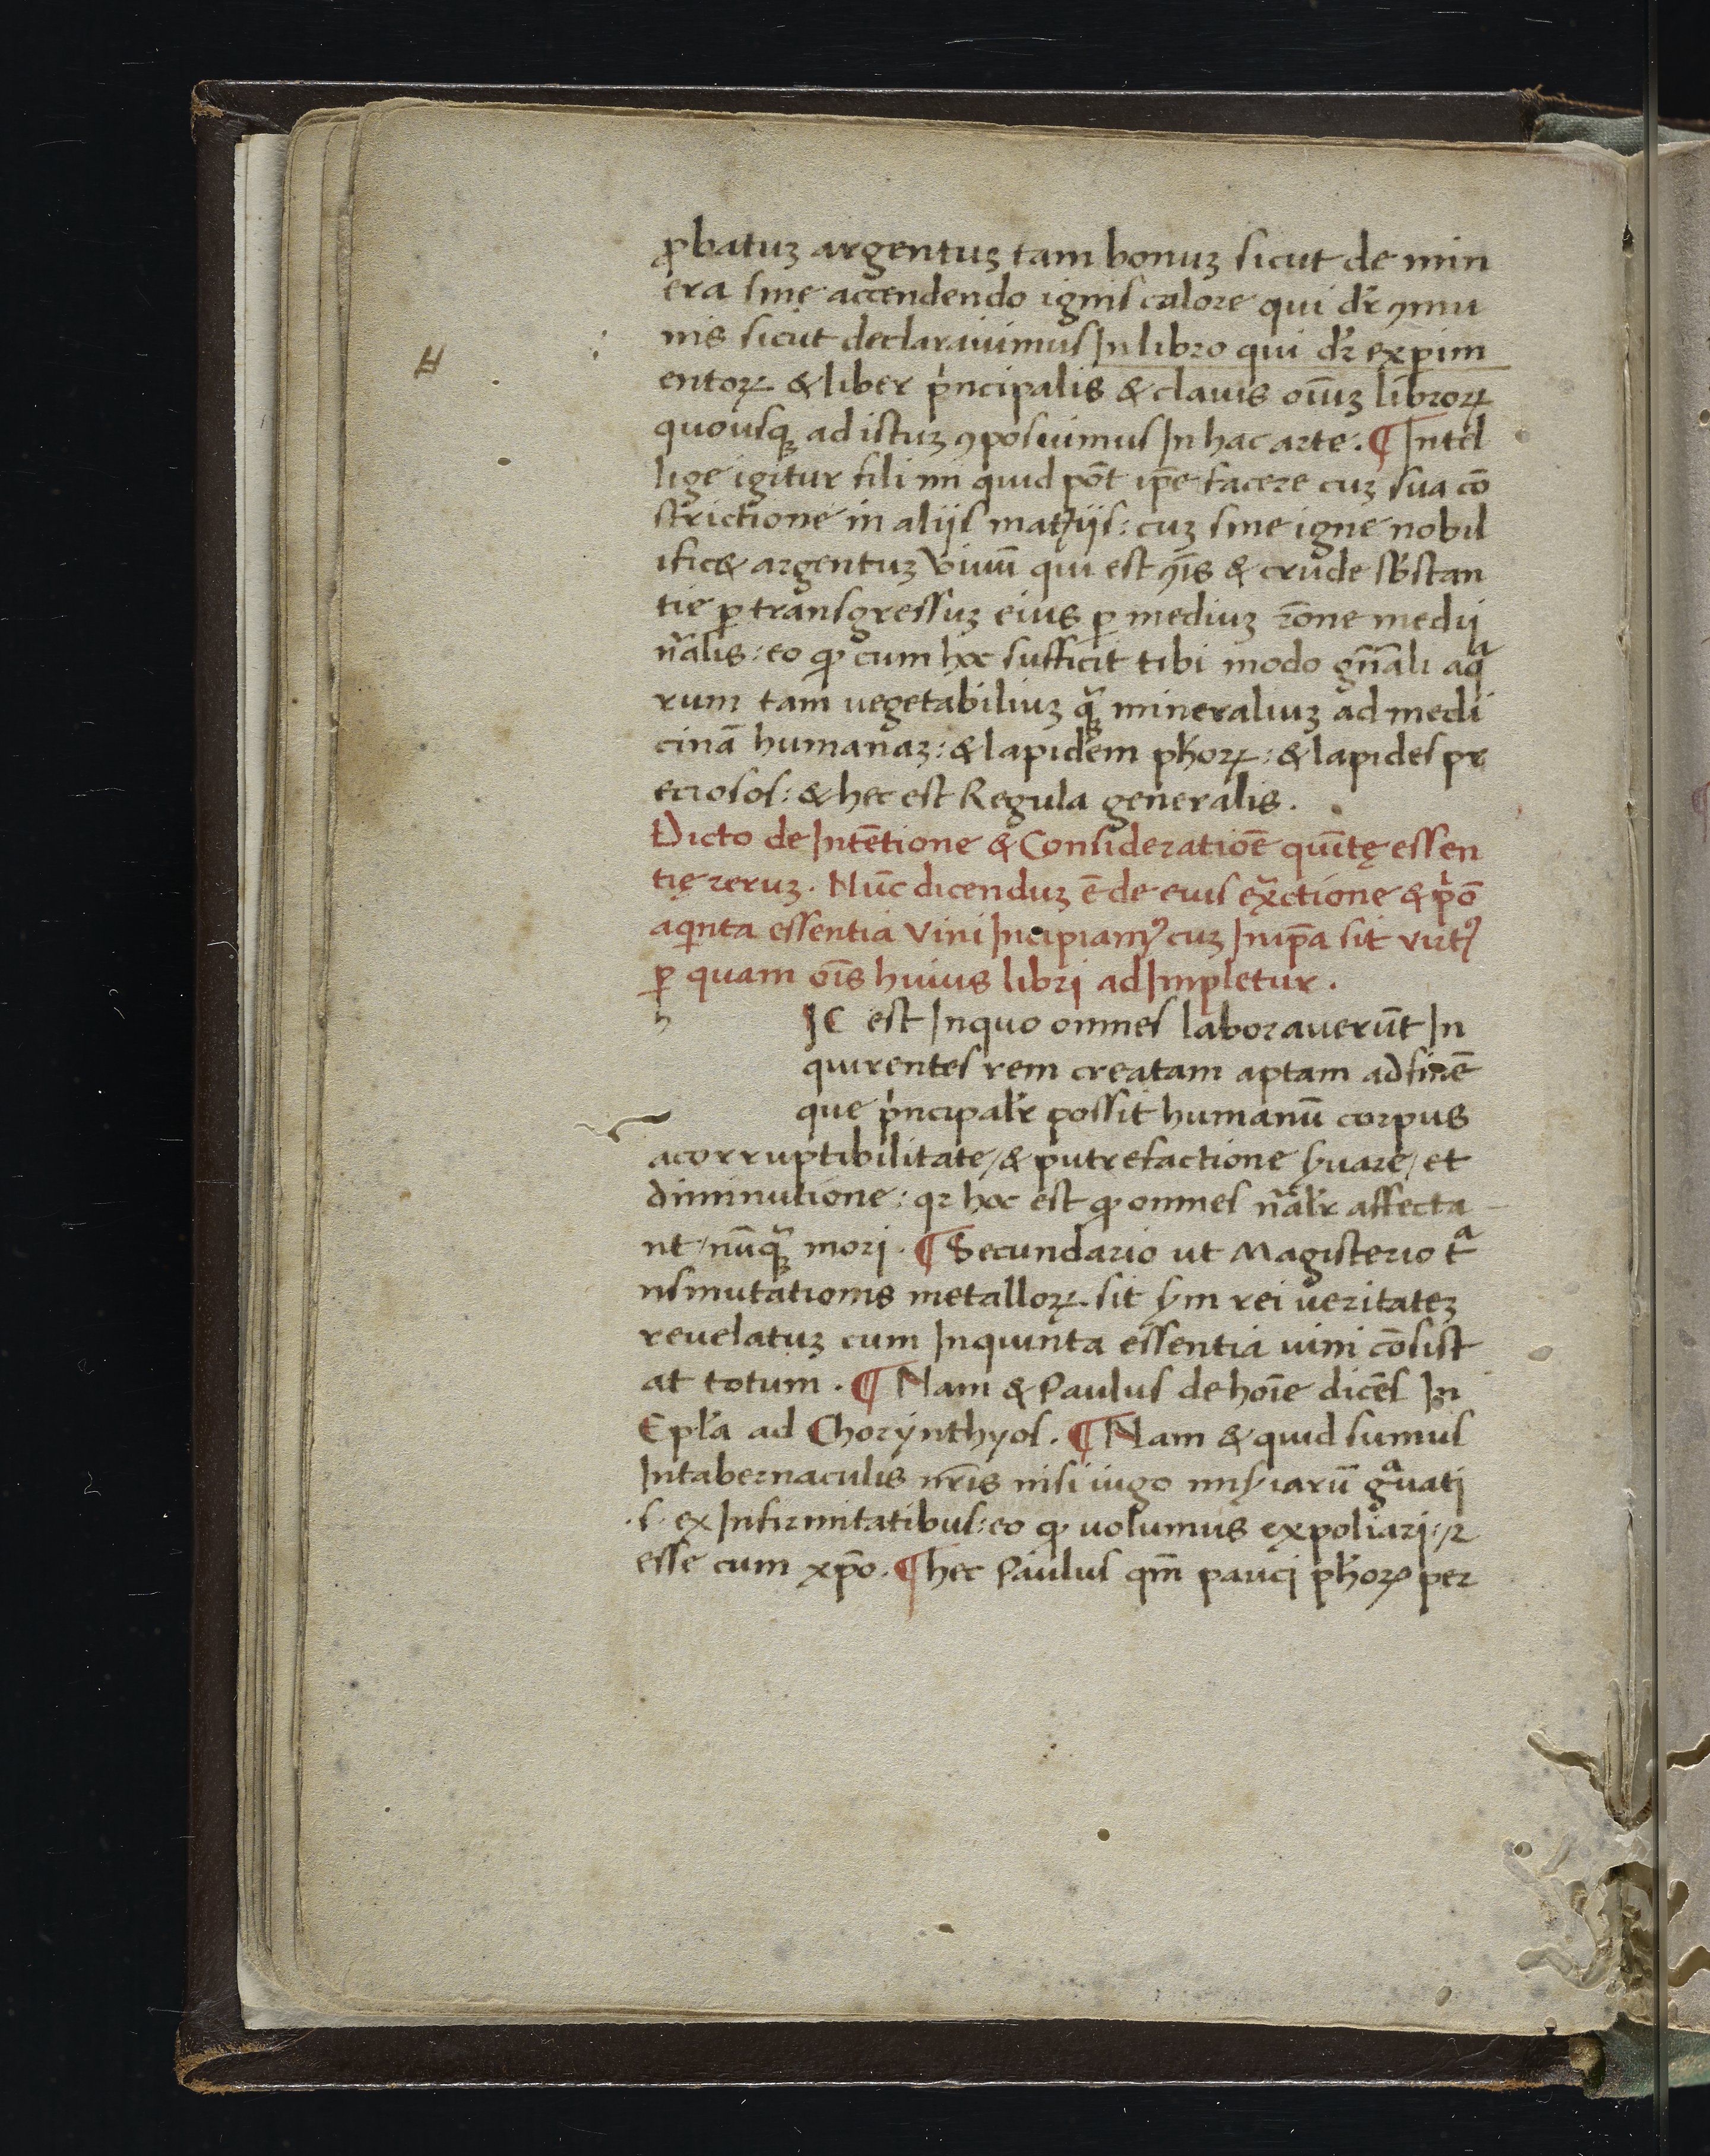 ꝓbatuꝫ argentuꝫ tam bonuꝫ sicut de min
era sine accendendo ignis calore qui dr̃ ꝯmu
nis sicut declarauimus In libro qui dr̃ exꝑim
entoꝝ & liber pͥncipalis & clauis oiũꝫ libroꝝ
quousqꝫ ad istuꝫ ꝯposuimus In hac arte. ¶ Intel
lige igitur fili mi quid põt ip̃e facere cuꝫ sua cõ
strictione in aliis mat̃iis: cuꝫ sine igne nobil
ific& argentuꝫ viuũ qui est ꝯ̃is & crude sb̃stan
tie ꝑ transgressuꝫ eius ꝑ mediuꝫ rõne medij
nãlis: eo ꝙ cum hoc sufficit tibi modo gñali aqᷓ
rum tam vegetabiliuꝫ qᷓꝫ mineraliuꝫ ad medi
cinã humanaꝫ: & lapidem ph̃oꝝ: & lapides pr
eciosos: & hec est Regula generalis.
Dicto de Intẽtione & Consideratiõe quĩtę essen
tię reruꝫ. Nũc dicenduꝫ ẽ de eius exᷓctione & pͥõ
aqͥnta essentia Vini Incipiamꝰ cuꝫ In ip̃a sit virtꝰ
ꝑ quam oĩs huius libri ad Impletur.
h IC est Inquo omnes laborauerũt In
quirentes rem creatam aptam ad finẽ
que pͥncipalr̃ possit humanũ corpus
acorruptibilitate / & putrefactione ẜuare / et
diminutione: qꝛ hoc est ꝙ omnes nãlr̃ affecta
nt / nũqᷓꝫ mori. ¶ Secundario ut Magisterio tᷓ
nsmutationis metalloꝝ. sit ẜm rei ueritateꝫ
reuelatuꝫ cum Inquinta essentia uini cõsist
at totum. ¶ Nam & Paulus de hoĩe dicẽs In
Epl̃a ad Chorynthyos. ¶ Nam & quid sumus
Intabernaculis nr̃is nisi iugo miẜiarũ gᷓuati
.s. ex Infirmitatibus: eo ꝙ uolumus expoliari: ⁊
esse cum xp̃o. ¶ hec Paulus qm̃ pauci ph̃oꝝ per